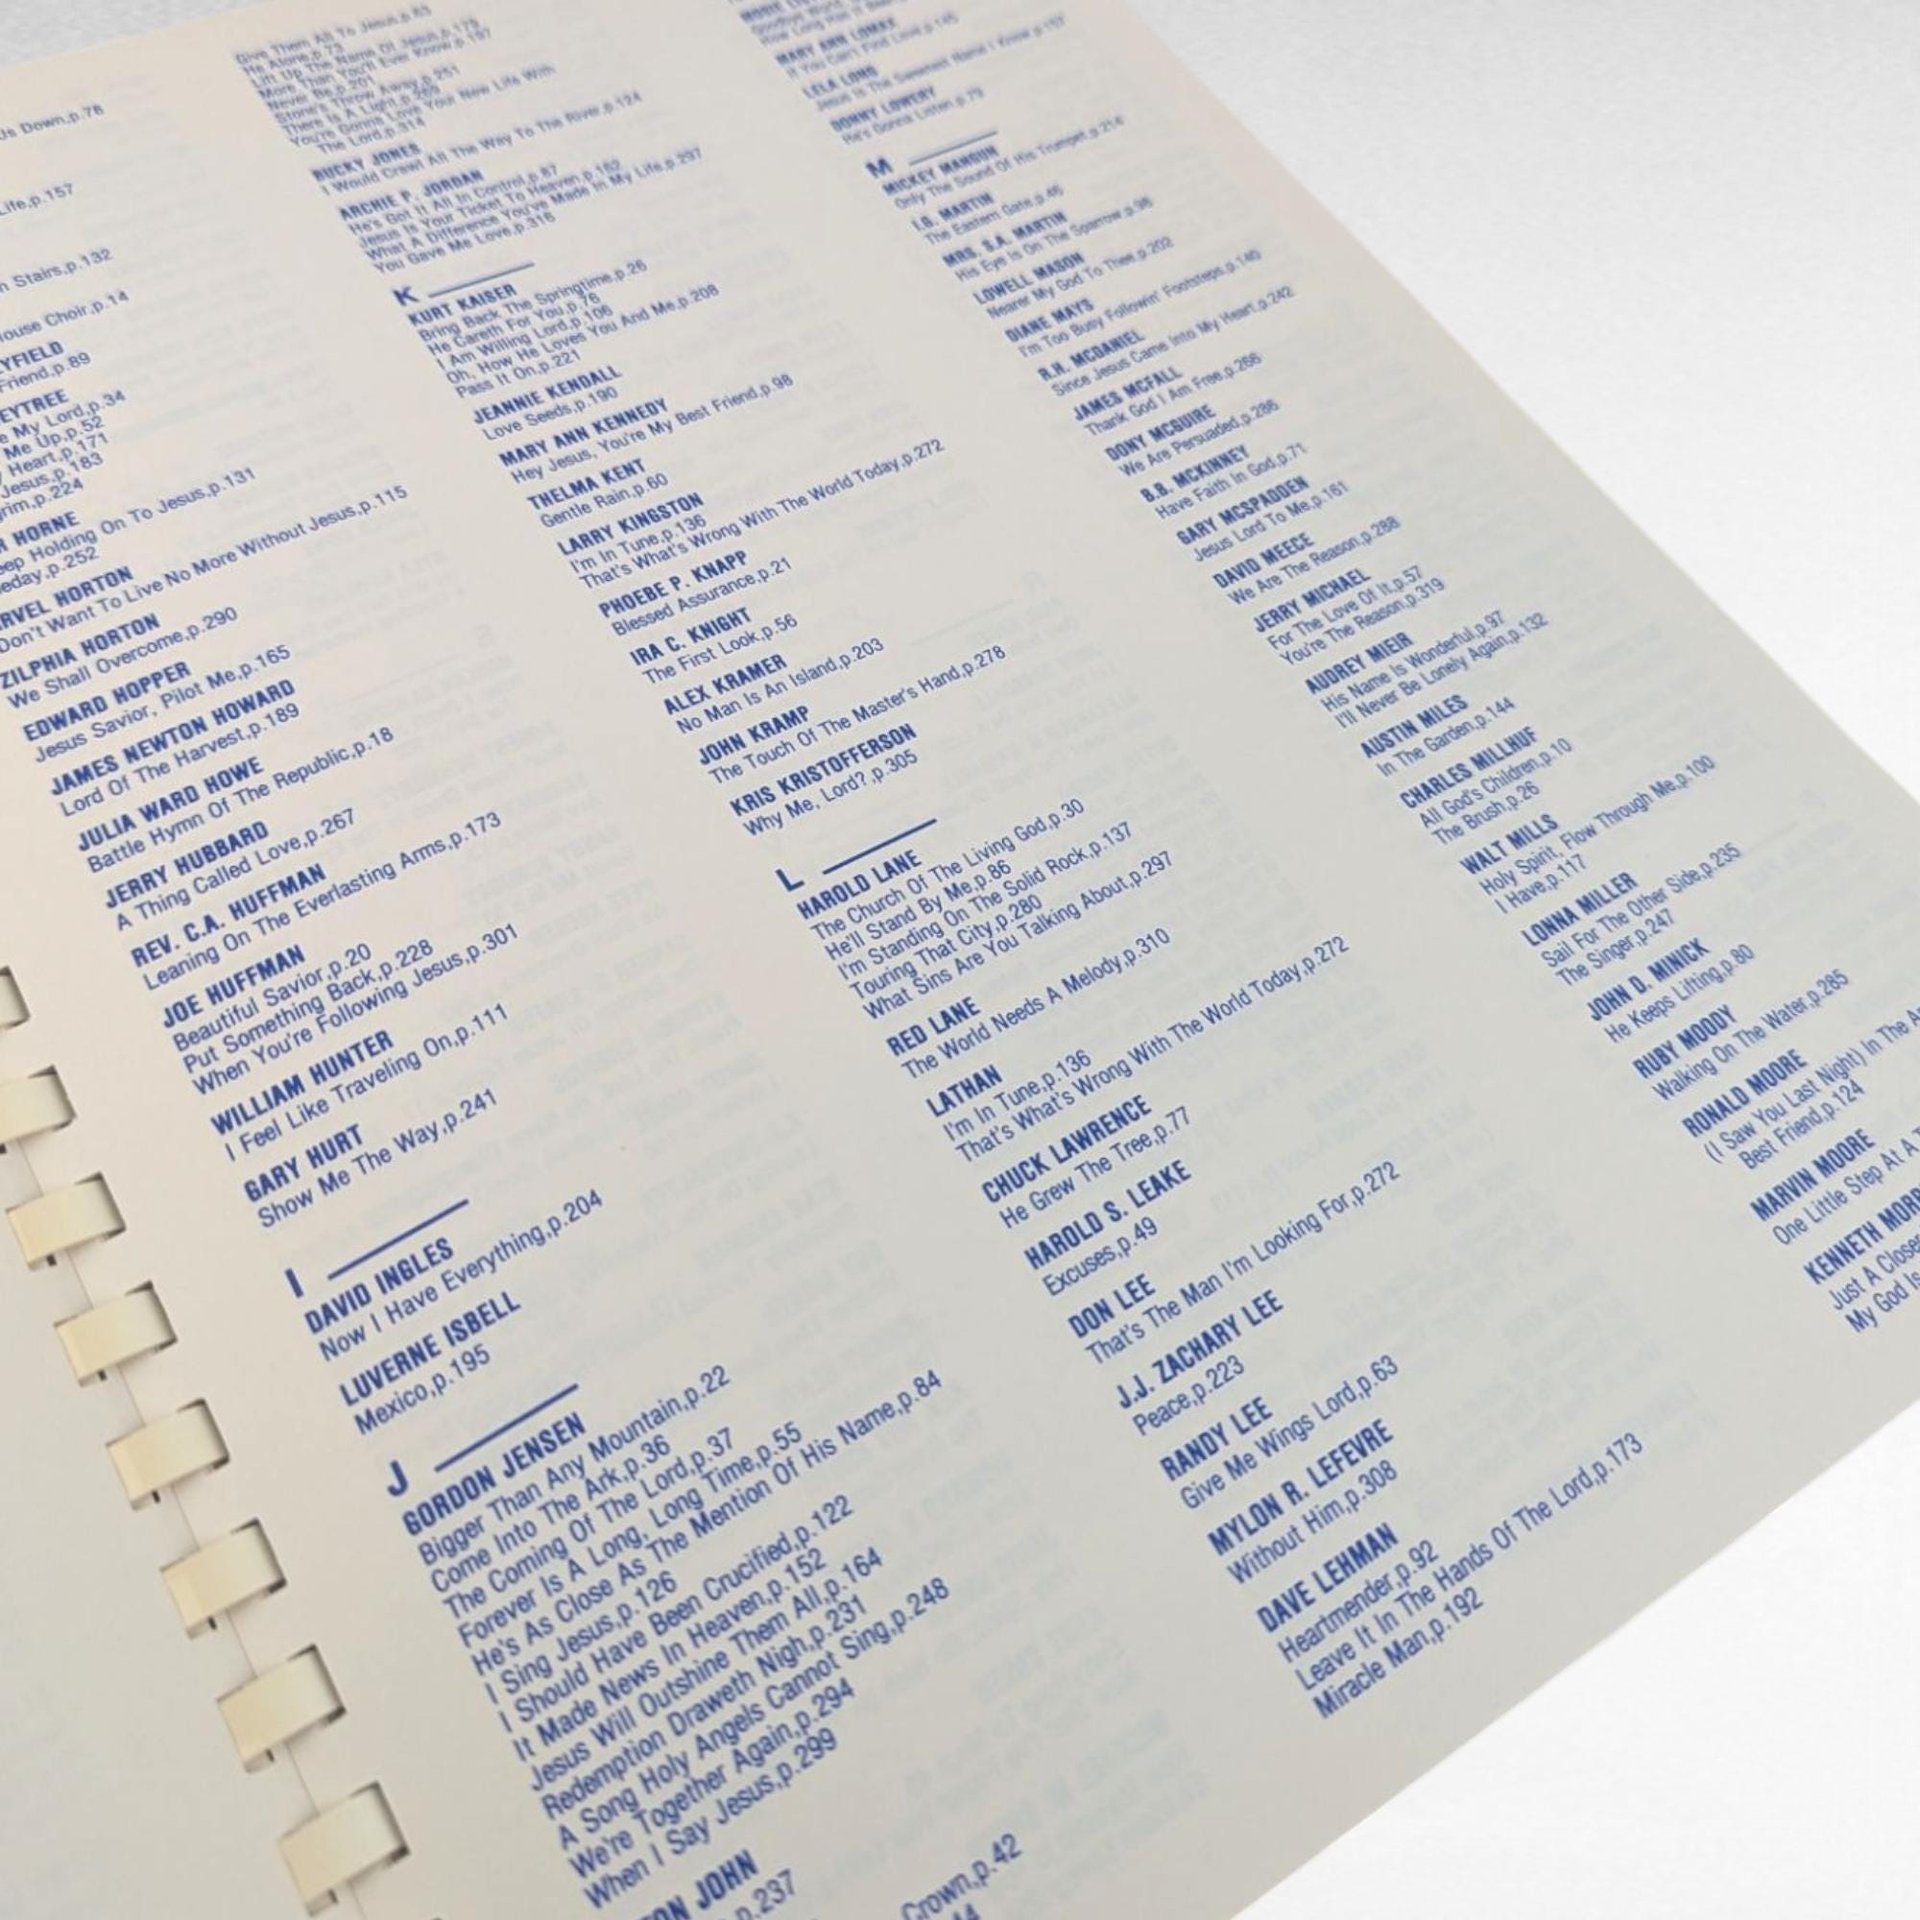 Us Down,p.76
Life,p.157
n Stairs,p.132
ouse Choir,p.14
YFIELD
Friend,p.89
EYTREE
e My Lord,p.34
Me Up,p.52
y Heart,p.171
Jesus,p.183
grim,p.224
R HORNE
eep Holding On To Jesus,p.131
eday,p.252
RVEL HORTON
Don't Want To Live No More Without Jesus,p.115
ZILPHIA HORTON
We Shall Overcome,p.290
EDWARD HOPPER
Jesus Savior, Pilot Me,p.165
JAMES NEWTON HOWARD
Lord Of The Harvest,p.189
JULIA WARD HOWE
Battle Hymn Of The Republic,p.18
JERRY HUBBARD
A Thing Called Love,p.267
REV. C.A. HUFFMAN
Leaning On The Everlasting Arms,p.173
JOE HUFFMAN
Beautiful Savior,p.20
Put Something Back,p.228
When You're Following Jesus,p.301
WILLIAM HUNTER
I Feel Like Traveling On,p.111
GARY HURT
Show Me The Way,p.241
I
DAVID INGLES
Now I Have Everything,p.204
LUVERNE ISBELL
Mexico,p.195
J
GORDON JENSEN
Bigger Than Any Mountain,p.22
Come Into The Ark,p.36
The Coming Of The Lord,p.37
Forever Is A Long, Long Time,p.55
He's As Close As The Mention Of His Name,p.84
I Sing Jesus,p.126
I Should Have Been Crucified,p.122
It Made News In Heaven,p.152
Jesus Will Outshine Them All,p.164
Redemption Draweth Nigh,p.231
A Song Holy Angels Cannot Sing,p.248
We're Together Again,p.294
When I Say Jesus,p.299
TON JOHN
p.237
Give Them All To Jesus,p.63
He Alone,p.73
Lift Up The Name Of Jesus,p.178
More Than You'll Ever Know,p.197
Never Be,p.201
Stone's Throw Away,p.251
There Is A Light,p.265
You're Gonna Love Your New Life With
The Lord,p.314
BUCKY JONES
I Would Crawl All The Way To The River,p.124
ARCHIE P. JORDAN
He's Got It All In Control,p.87
Jesus Is Your Ticket To Heaven,p.162
What A Difference You've Made In My Life,p.297
You Gave Me Love,p.316
K
KURT KAISER
Bring Back The Springtime,p.26
He Careth For You,p.76
I Am Willing Lord,p.106
Oh, How He Loves You And Me,p.208
Pass It On,p.221
JEANNIE KENDALL
Love Seeds,p.190
MARY ANN KENNEDY
Hey Jesus, You're My Best Friend,p.98
THELMA KENT
Gentle Rain,p.60
LARRY KINGSTON
I'm In Tune,p.136
That's What's Wrong With The World Today,p.272
PHOEBE P. KNAPP
Blessed Assurance,p.21
IRA C. KNIGHT
The First Look,p.56
ALEX KRAMER
No Man Is An Island,p.203
JOHN KRAMP
The Touch Of The Master's Hand,p.278
KRIS KRISTOFFERSON
Why Me, Lord?,p.305
L
HAROLD LANE
The Church Of The Living God,p.30
He'll Stand By Me,p.86
I'm Standing On The Solid Rock,p.137
Touring That City,p.280
What Sins Are You Talking About,p.297
RED LANE
The World Needs A Melody,p.310
LATHAN
I'm In Tune,p.136
That's What's Wrong With The World Today,p.272
CHUCK LAWRENCE
He Grew The Tree,p.77
HAROLD S. LEAKE
Excuses,p.49
DON LEE
That's The Man I'm Looking For,p.272
J.J. ZACHARY LEE
Peace,p.223
RANDY LEE
Give Me Wings Lord,p.63
MYLON R. LEFEVRE
Without Him,p.308
DAVE LEHMAN
Heartmender,p.92
Leave It In The Hands Of The Lord,p.173
Miracle Man,p.192
Crown,p.42
MARY ANN LOMAX
If You Can't Find Love,p.145
LELA LONG
Jesus Is The Sweetest Name I Know,p.157
DONNY LOWERY
He's Gonna Listen,p.79
M
MICKEY MANGUN
Only The Sound Of His Trumpet,p.214
I.G. MARTIN
The Eastern Gate,p.46
MRS. S.A. MARTIN
His Eye Is On The Sparrow,p.96
LOWELL MASON
Nearer My God To Thee,p.202
DIANE MAYS
I'm Too Busy Followin' Footsteps,p.140
R.H. MCDANIEL
Since Jesus Came Into My Heart,p.242
JAMES MCFALL
Thank God I Am Free,p.266
DONY MCGUIRE
We Are Persuaded,p.286
B.B. MCKINNEY
Have Faith In God,p.71
GARY MCSPADDEN
Jesus Lord To Me,p.161
DAVID MEECE
We Are The Reason,p.288
JERRY MICHAEL
For The Love Of It,p.57
You're The Reason,p.319
AUDREY MIEIR
His Name Is Wonderful,p.97
I'll Never Be Lonely Again,p.132
AUSTIN MILES
In The Garden,p.144
CHARLES MILLHUF
All God's Children,p.10
The Brush,p.26
WALT MILLS
Holy Spirit, Flow Through Me,p.100
I Have,p.117
LONNA MILLER
Sail For The Other Side,p.235
The Singer,p.247
JOHN D. MINICK
He Keeps Lifting,p.80
RUBY MOODY
Walking On The Water,p.285
RONALD MOORE
(I Saw You Last Night) In The A
Best Friend,p.124
MARVIN MOORE
One Little Step At A T
KENNETH MORR
Just A Closer
My God Is